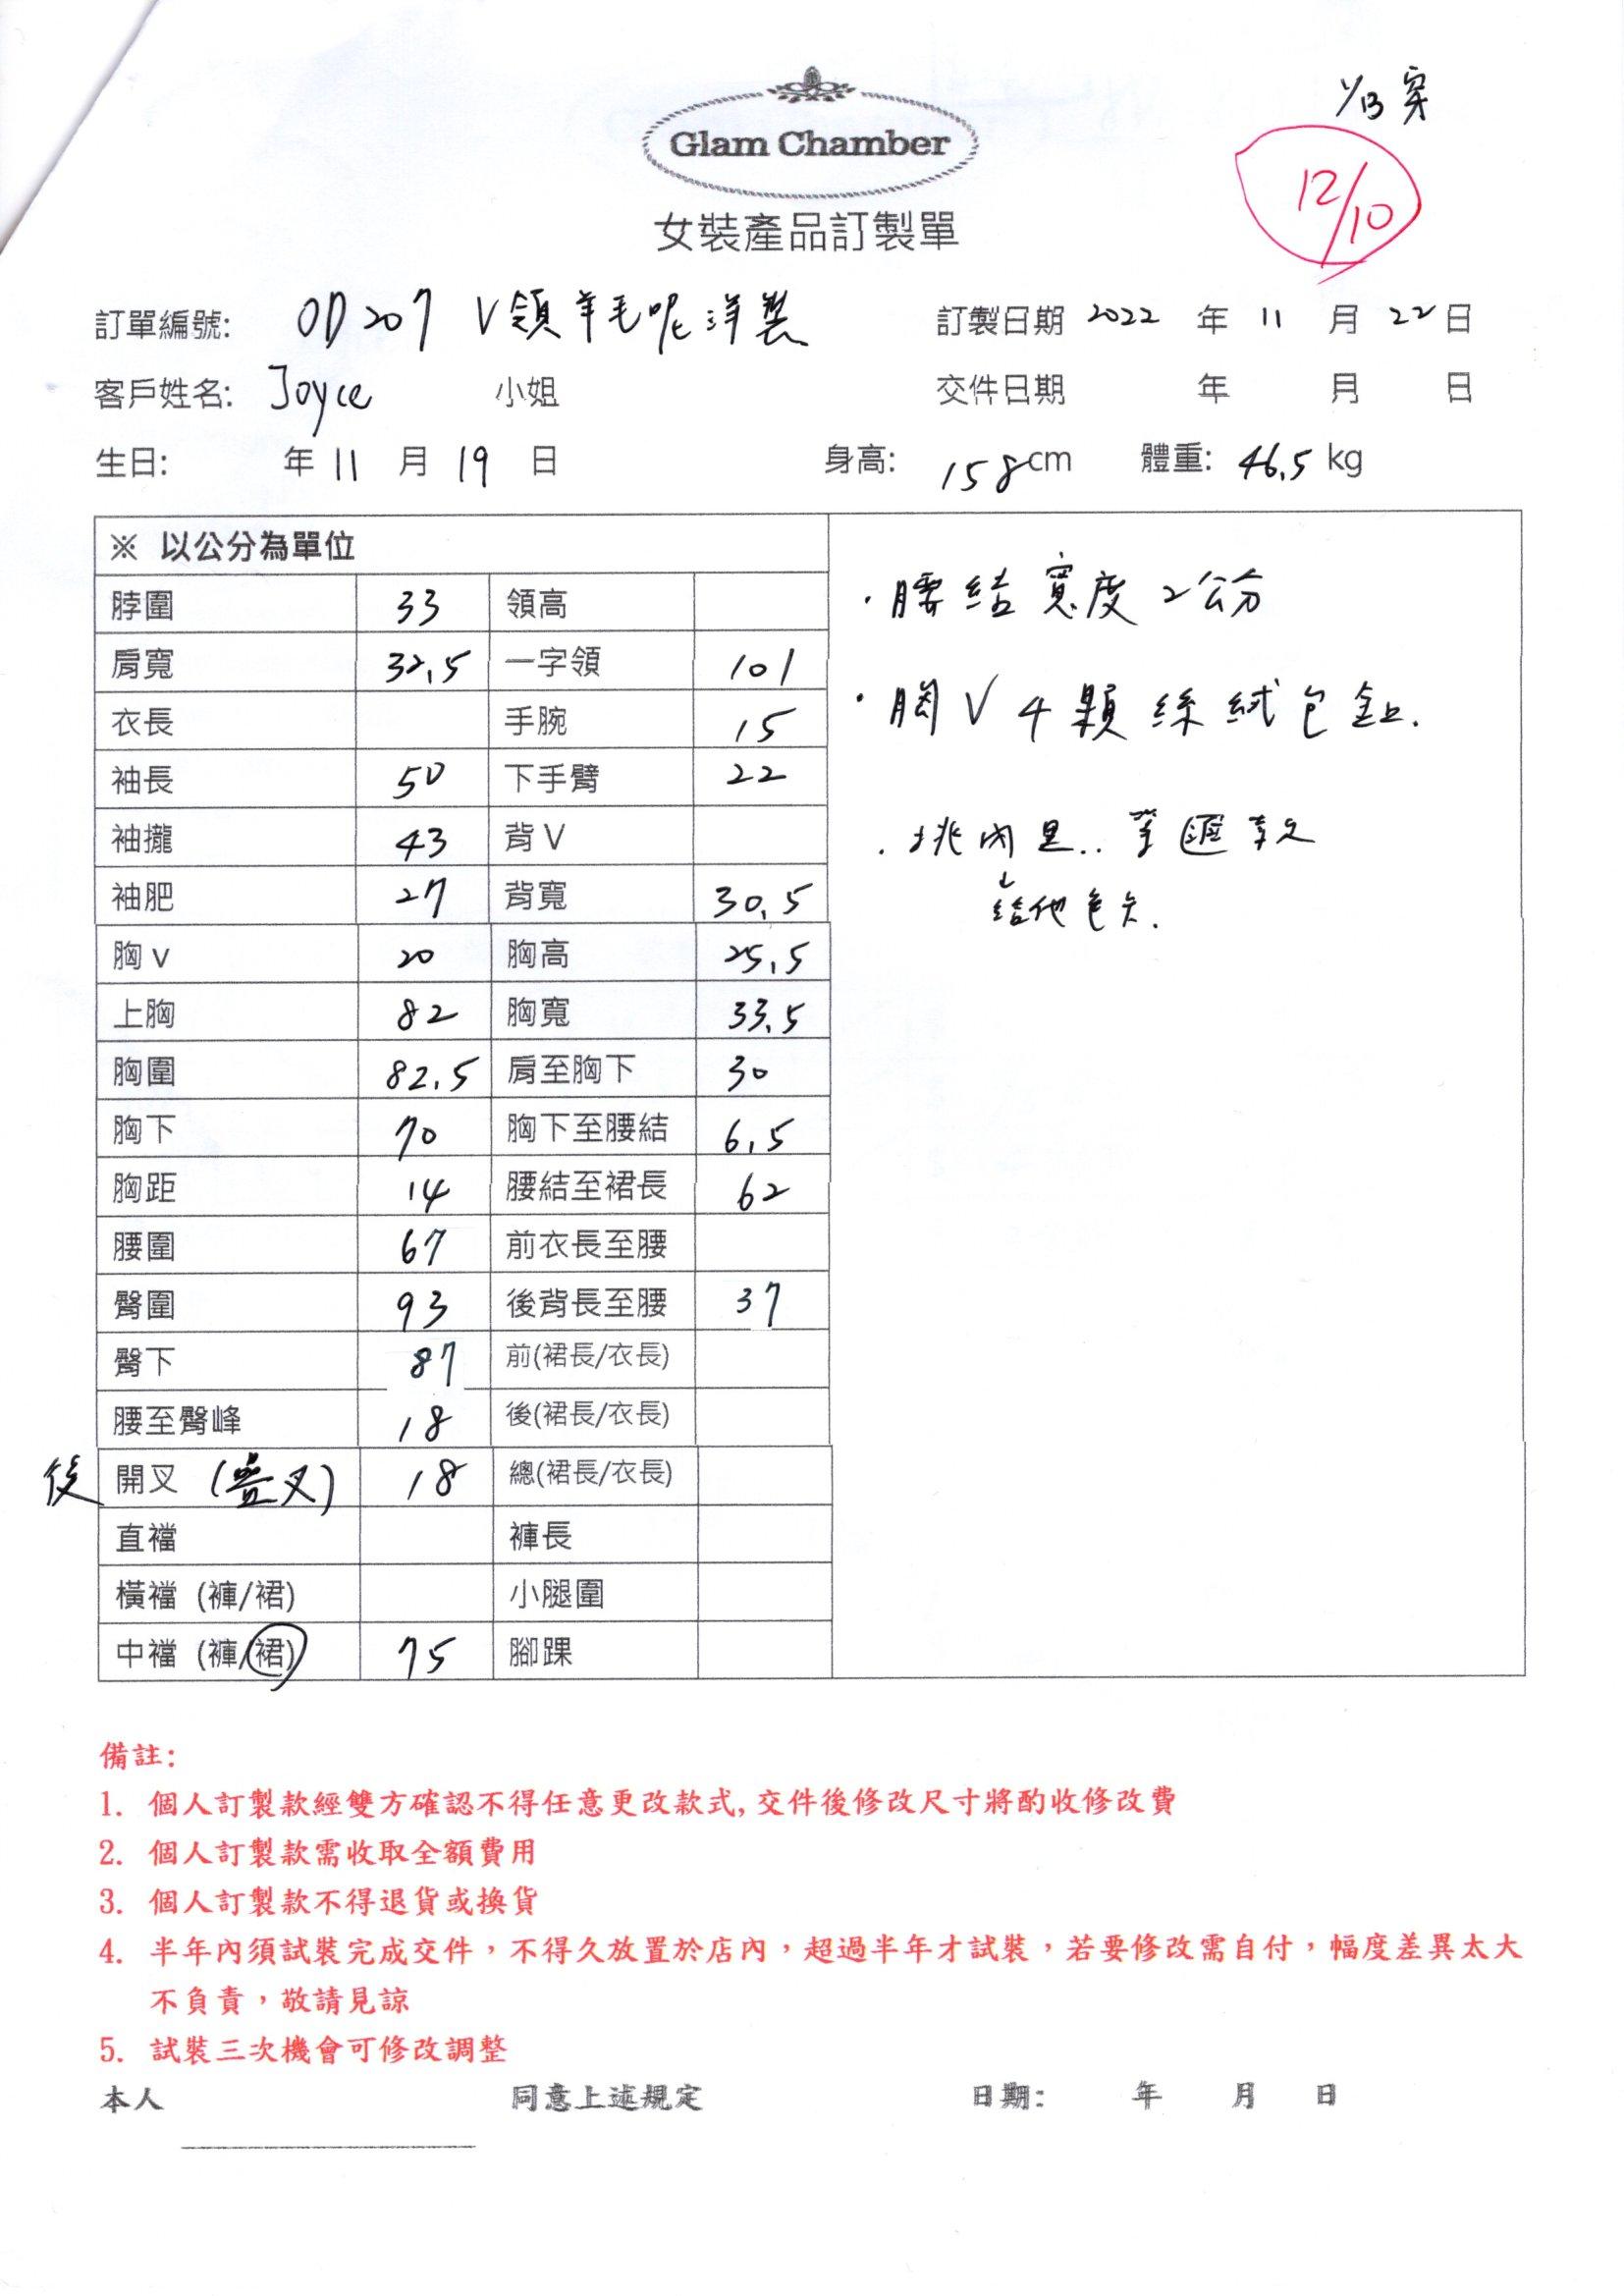 1/13 穿
Glam Chamber
12/10
女裝產品訂製單
訂單編號: OD207 V領羊毛呢洋裝 訂製日期 2022 年 11 月 22 日
客戶姓名: Joyce 小姐 交件日期 年 月 日
生日: 年 11 月 19 日 身高: 158 cm 體重: 46.5 kg
※ 以公分為單位
脖圍 33 領高
肩寬 32.5 一字領 101
衣長 手腕 15
袖長 50 下手臂 22
袖攏 43 背V
袖肥 27 背寬 30.5
胸v 20 胸高 25.5
上胸 82 胸寬 33.5
胸圍 82.5 肩至胸下 30
胸下 70 胸下至腰結 6.5
胸距 14 腰結至裙長 62
腰圍 67 前衣長至腰
臀圍 93 後背長至腰 37
臀下 87 前(裙長/衣長)
腰至臀峰 18 後(裙長/衣長)
後 開叉 (疊叉) 18 總(裙長/衣長)
直襠 褲長
橫襠 (褲/裙) 小腿圍
中襠 (褲/裙) 75 腳踝
·腰結寬度2公分
·胸V 4顆絲絨包釦.
·挑內里.. 等匯款
↓
給他色卡.
備註:
1. 個人訂製款經雙方確認不得任意更改款式, 交件後修改尺寸將酌收修改費
2. 個人訂製款需收取全額費用
3. 個人訂製款不得退貨或換貨
4. 半年內須試裝完成交件，不得久放置於店內，超過半年才試裝，若要修改需自付，幅度差異太大
不負責，敬請見諒
5. 試裝三次機會可修改調整
本人 同意上述規定 日期: 年 月 日